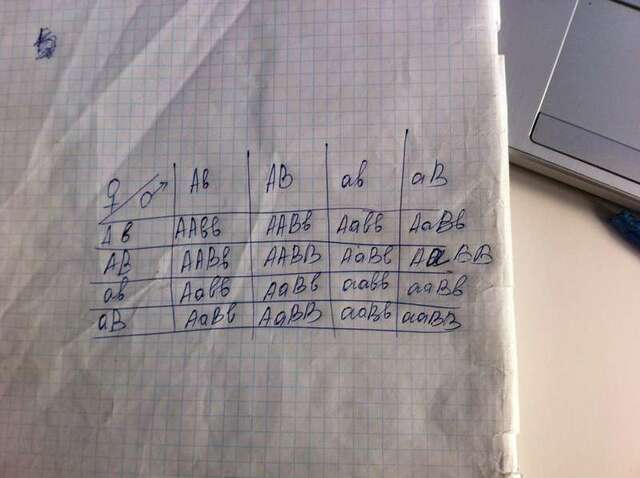 ♀/♂ Ab AB ab aB
Ab AAbb AABb Aabb AaBb
AB AABb AABB AaBb AaBB
ab Aabb AaBb aabb aaBb
aB AaBb AaBB aaBb aaBB